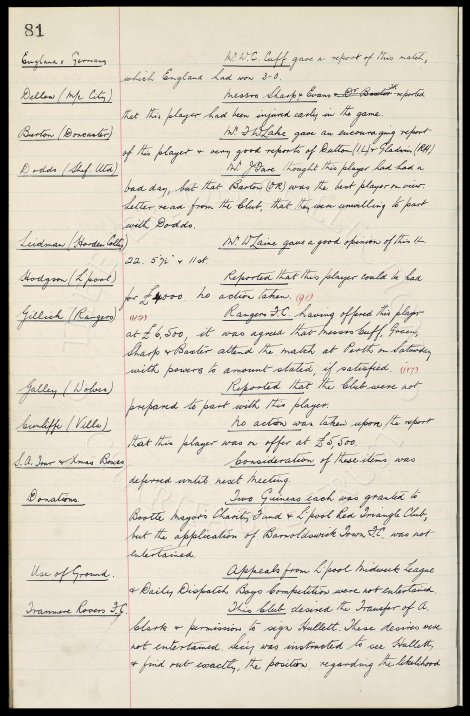 81
England v Germany
Mr W.C. Cuff gave a report of this match,
which England had won 3-0.
Dellow (M/c City)
Messrs Sharp & Evans & Dr Baxter reported
that this player had been injured early in the game.
Burton (Doncaster)
Mr. T W Lake gave an encouraging report
of this player & very good reports of Dutton (I.L.) & Gladwin (R.H.)
Dodds (Shef. Utd)
Mr. J Fare thought this player had had a
bad day, but that Barton (O.R) was the best player on view.
Letter read from the Club, that they were unwilling to part
with Dodds.
Luidman (Horden Colly)
Mr. D Laine gave a good opinion of this 11-
22. 5' 7½" & 11st.
Hodgson (L'pool)
Reported that this player could be had
for £4000. No action taken. (91)
Gillick (Rangers)
(112)
Rangers F.C. having offered this player
at £6,500, it was agreed that Messrs Cuff, Green,
Sharp & Baxter attend the match at Perth on Saturday
with powers to amount stated, if satisfied. (117)
Galley (Wolves)
Reported that the Club were not
prepared to part with this player.
Cunliffe (Villa)
No action was taken upon the report
that this player was on offer at £5,500.
S.A. Tour & Xmas Boxes
Consideration of these items was
deferred until next meeting.
Donations.
Two Guineas each was granted to
Bootle Mayor's Charity Fund & L'pool Red Triangle Club,
but the application of Barnoldswick Town F.C. was not
entertained.
Use of Ground.
Appeals from L'pool Midweek League
& Daily Dispatch Boys Competition were not entertained.
Tranmere Rovers F.C
This Club desired the Transfer of A.
Clark & permission to sign Hullett. These desires were
not entertained. Secy was instructed to see Hullett,
& find out exactly, the position, regarding the likelihood